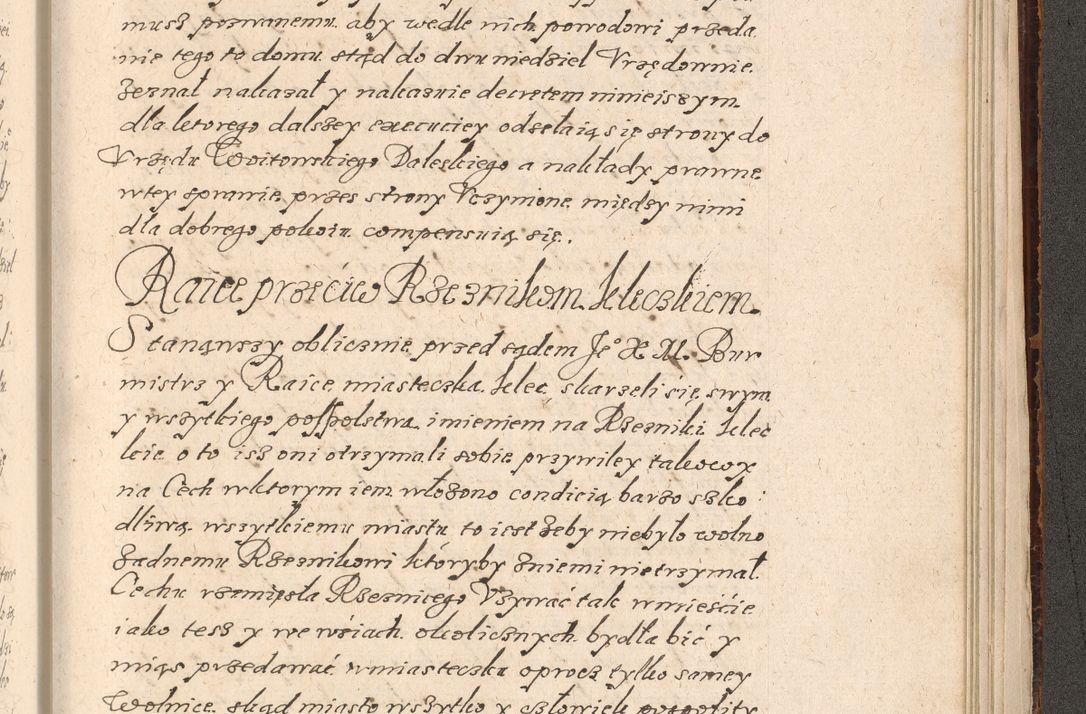 musz pozwanemu aby wedle nich powodowi przeda
nie tego to domu stąd do dwu niedziel Vrzędownie
zeznał nakazał y nakaznie decretem ninieiszym
dla ktorego dalszey execuciey odsełaią się strony do
Vrzędu Woitowskiego Daleskiego a nakłady prawne
wtey sprawie przes strony Vczynione między nimi
dla dobrego pokoiu compensuią się.
Raice przeciw Rzeznikom kleczkiem
Stanąwszy oblicznie przed sądem Je° X M. Bur
mistrz y Raice miasteczka klec skarzeli się swym
y wszytkiego pospolstwa imieniem na Rzezniki klec
kie o to isz oni otrzymali sobie przywiley takowy
na Cech wktorym iem włozono condicią barzo szko:
dliwą wszytkiemu miastu to iest zeby niebyło wolno
zadnemu Rzeznikowi ktoryby zniemi nietrzymał
Cechu rzemięsła Rzeznicego Vzywać tak wmieście
iako tesz y we wsiach okolicznych bydła bić y
mięs przedawać wmiasteczku oprocz tylko samey
Wolnice skąd miasto wszytko y człowiek pospolity